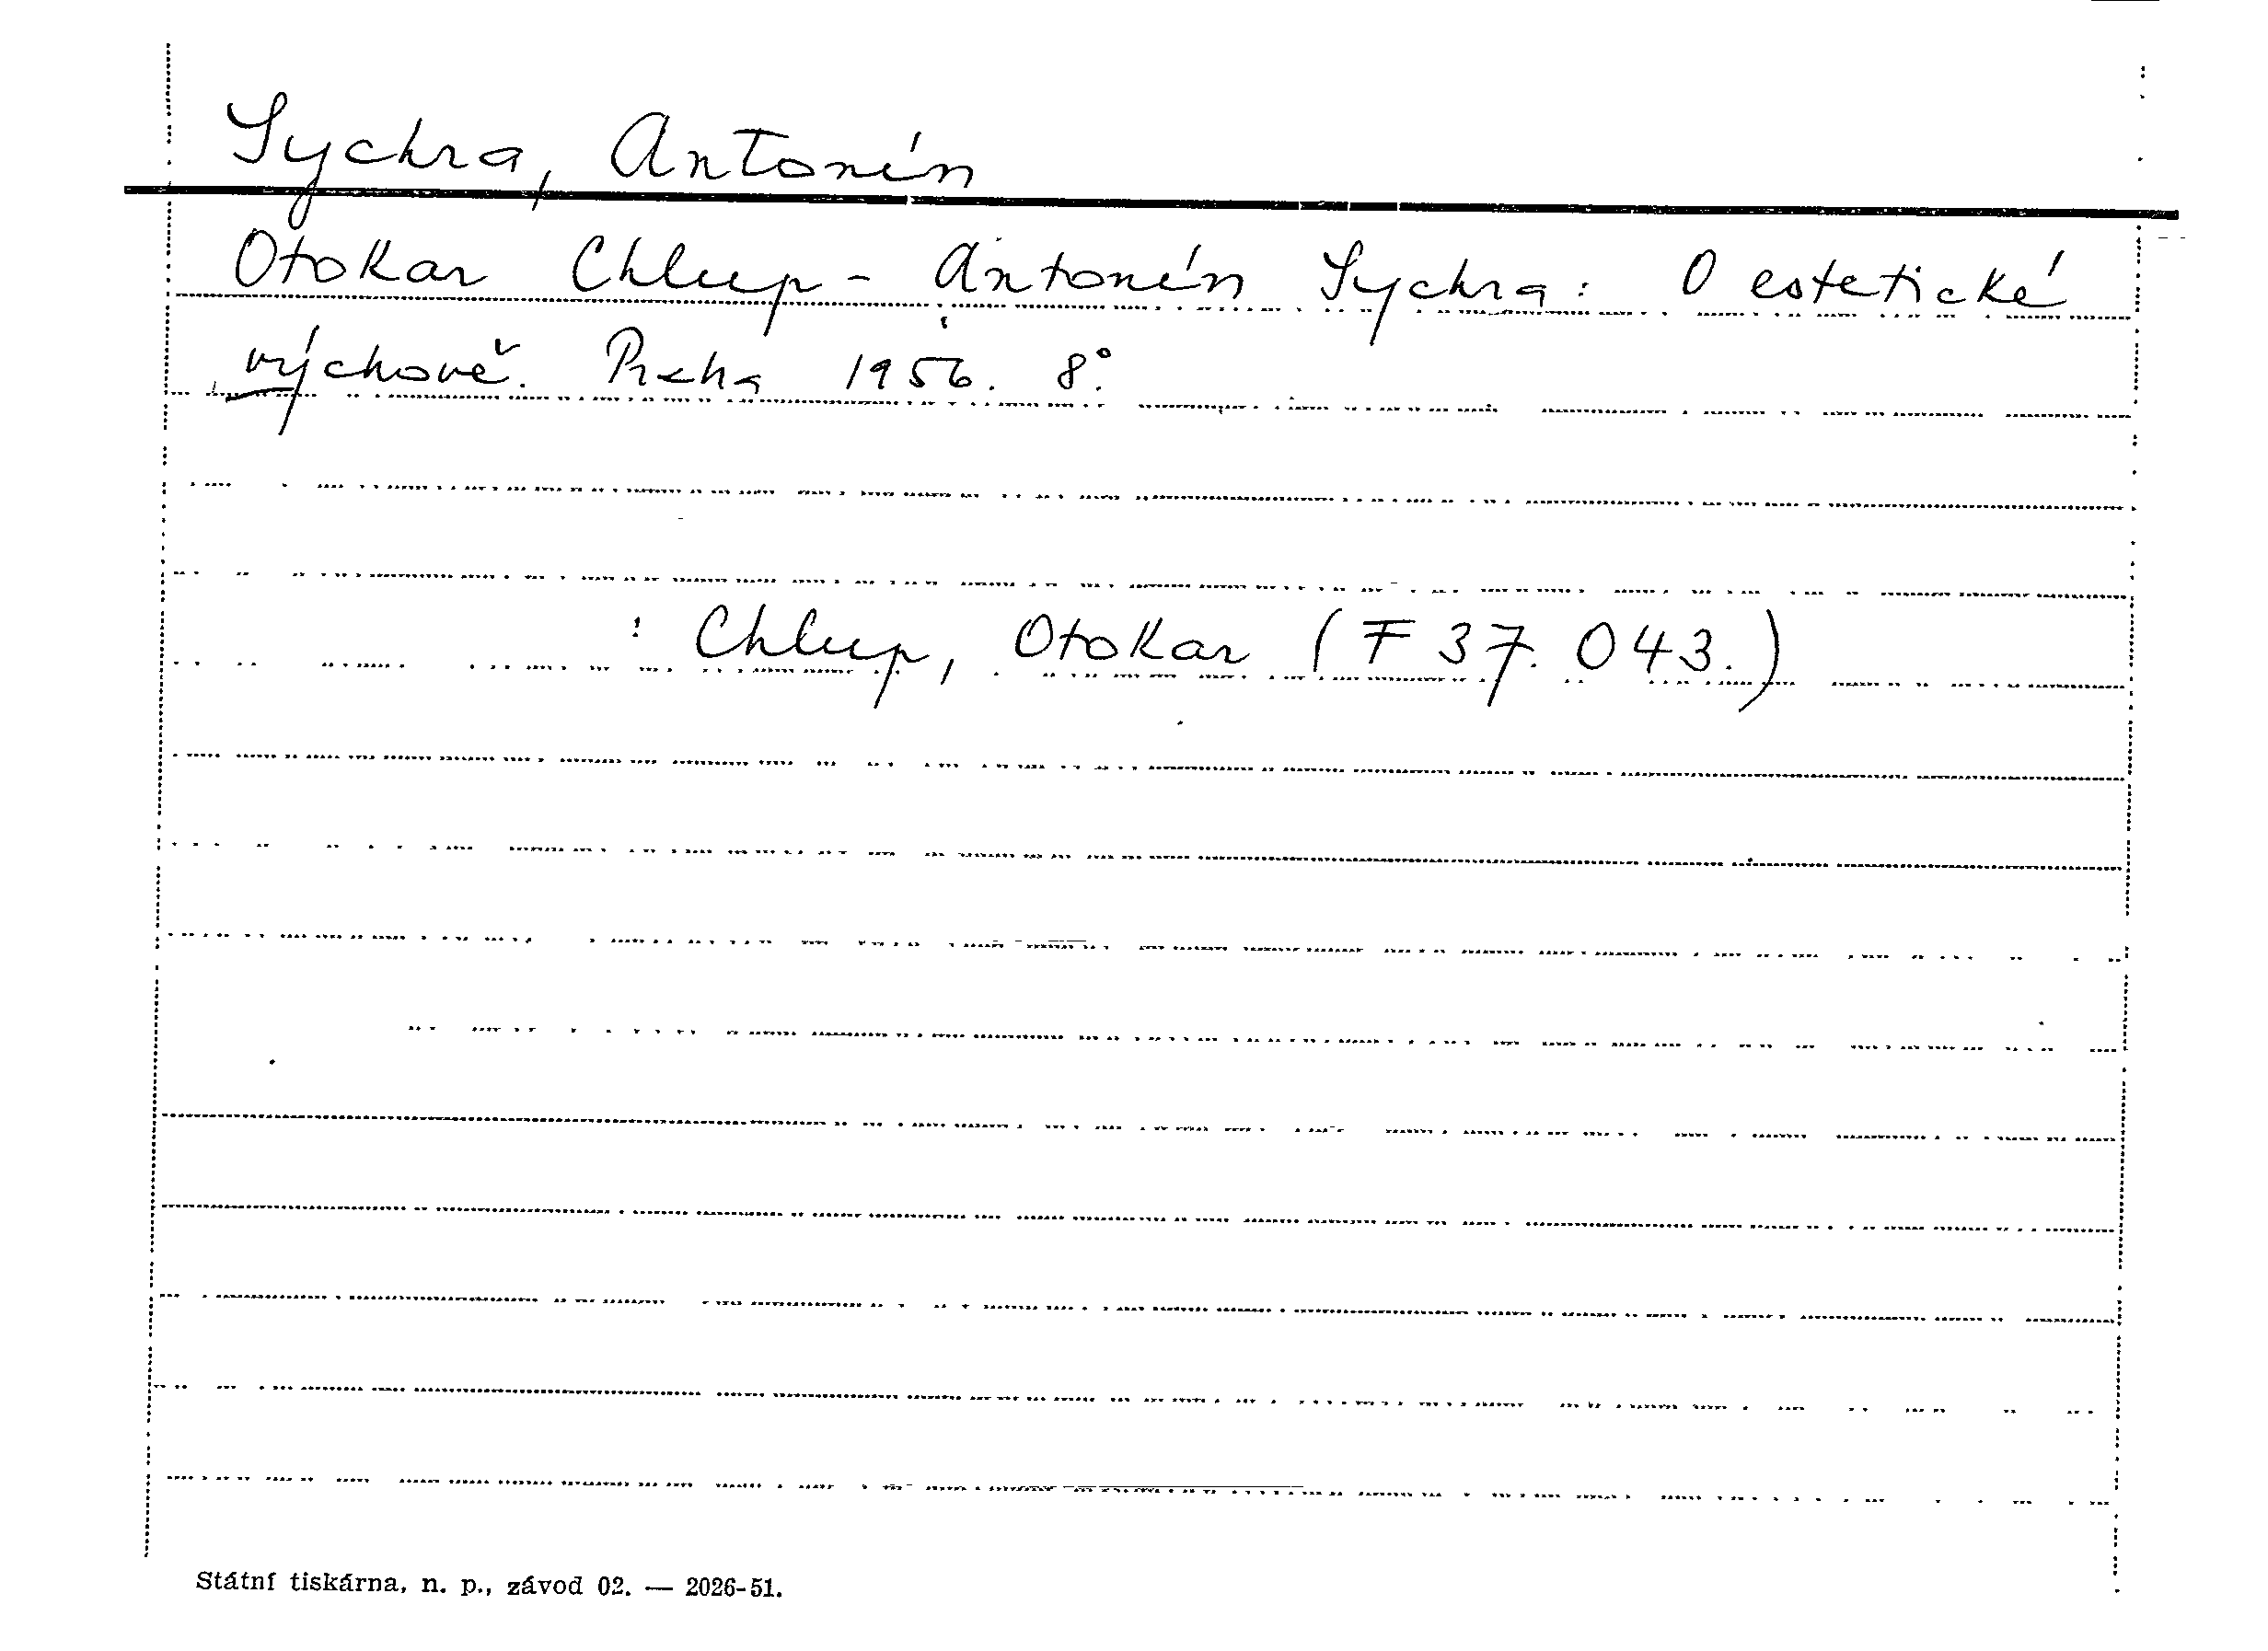 Sychra, Antonín
Otokar Chlup - Antonín Sychra: O estetické
výchově. Praha 1956. 8°.
: Chlup, Otokar (F 37.043.)
Státní tiskárna, n. p., závod 02. — 2026-51.